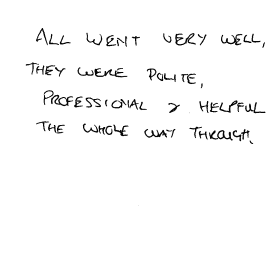 ALL WENT VERY WELL,
THEY WERE POLITE,
PROFESSIONAL & HELPFUL
THE WHOLE WAY THROUGH.